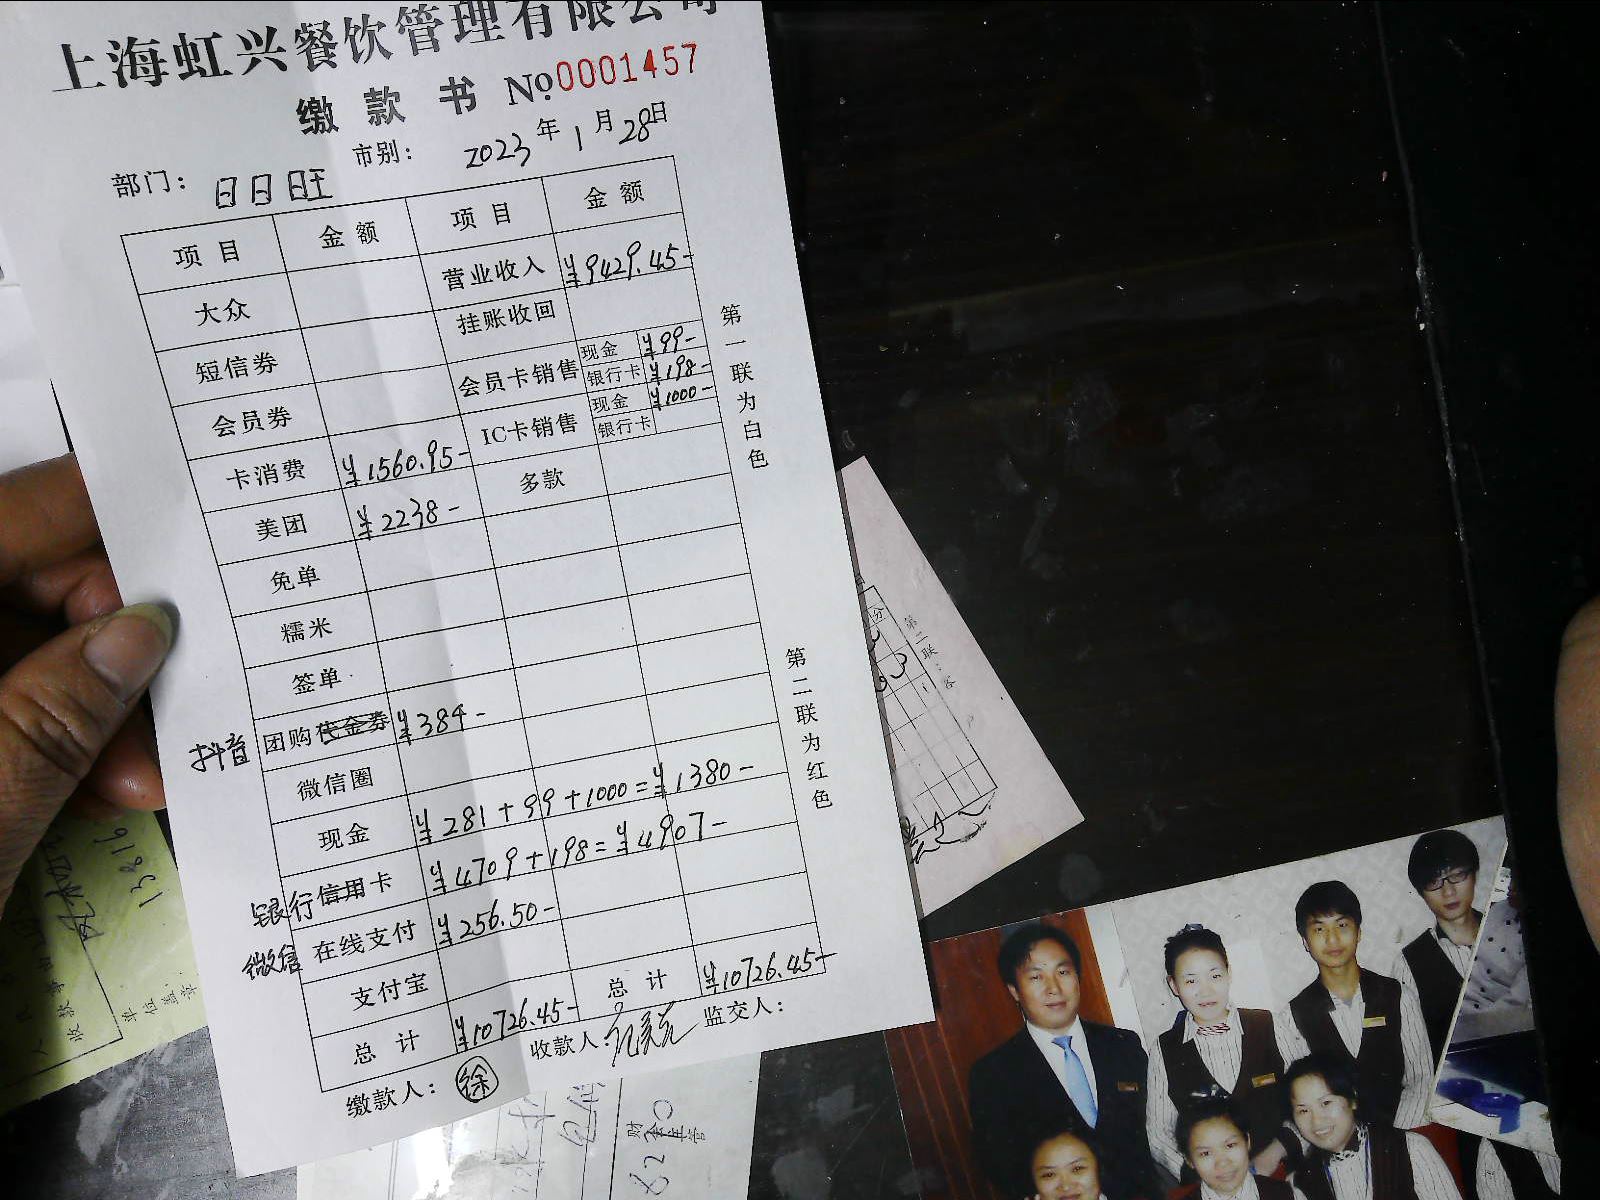 上海虹兴餐饮管理有限公司
缴款书 №0001457
市别： 2023年1月28日
部门： 日日旺
项目 金额 项目 金额
大众 营业收入 ¥9429.45-
短信券 挂账收回
会员券 会员卡销售 现金 ¥99-
银行卡 ¥198-
卡消费 ¥1560.95- IC卡销售 现金 ¥1000-
银行卡
美团 ¥2238- 多款
免单
糯米
签单
抖音 团购代金券 ¥384-
微信圈
现金 ¥281+99+1000=¥1380-
银行信用卡 ¥4709+198=¥4907-
微信 在线支付 ¥256.50-
支付宝
总计 ¥10726.45- 总计 ¥10726.45-
缴款人： 徐 收款人： 监交人：
第一联为白色
第二联为红色
第二联：客
分
13816
收款事由
单位盖章
财会主管